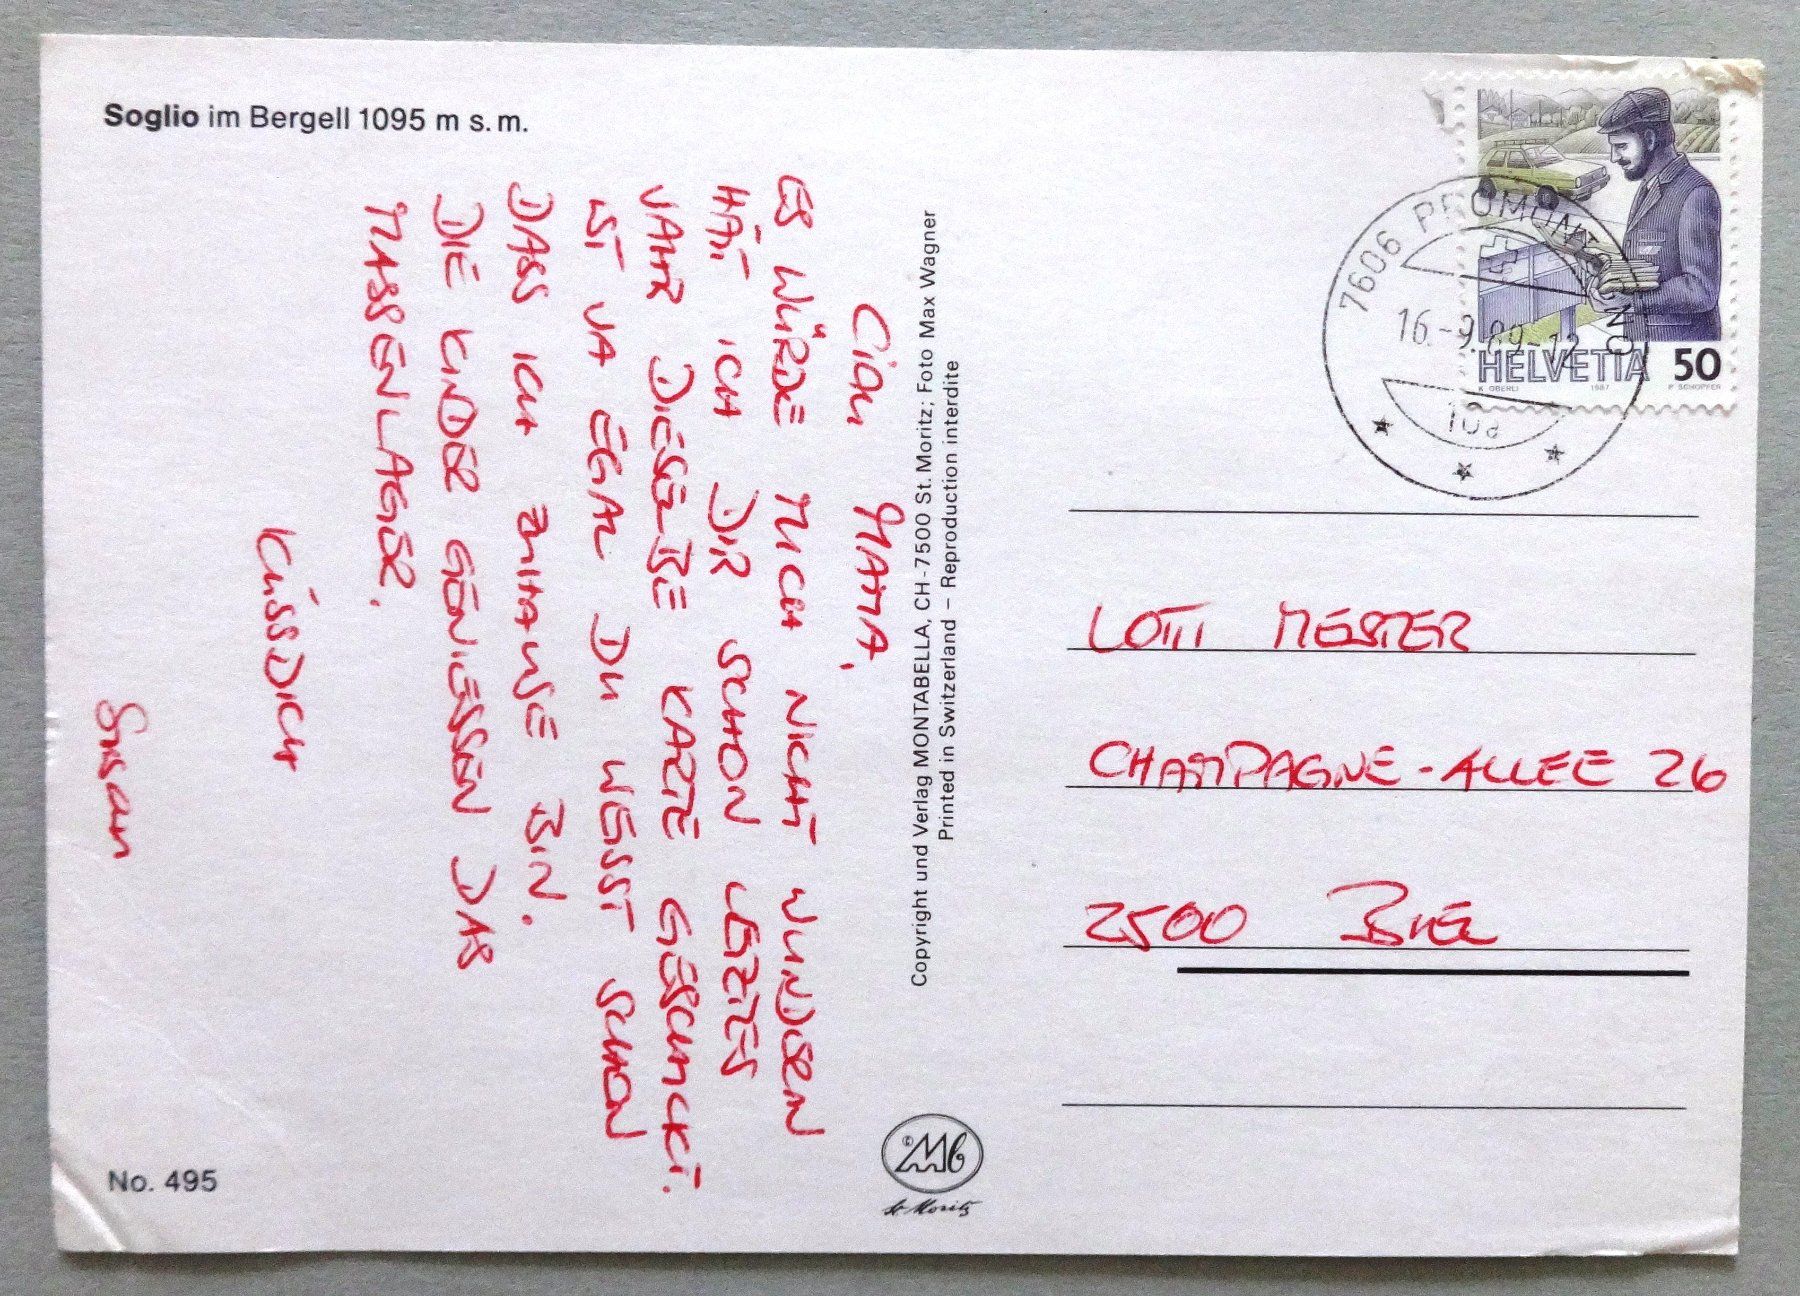 Soglio im Bergell 1095 m s.m.
CIAU MAMA,
ES WÜRDE MICH NICHT WUNDERN
HÄTT ICH DIR SCHON LETZTES
JAHR DIESELBE KARTE GESCHICKT.
IST JA EGAL DU WEISST SCHON
DASS ICH ZUHAUSE BIN.
DIE KINDER GENIESSEN DAS
MASSENLAGER.
KÜSSDICH
Susan
No. 495
Copyright und Verlag MONTABELLA, CH-7500 St. Moritz; Foto Max Wagner
Printed in Switzerland – Reproduction interdite
© Mb
St. Moritz
7606 PROMONTOGNO
16.-9.89-12
HELVETIA 50
K OBERLI 1987 P SCHOPFER
LOTTI MEISTER
CHAMPAGNE-ALLEE 26
2500 BIEL